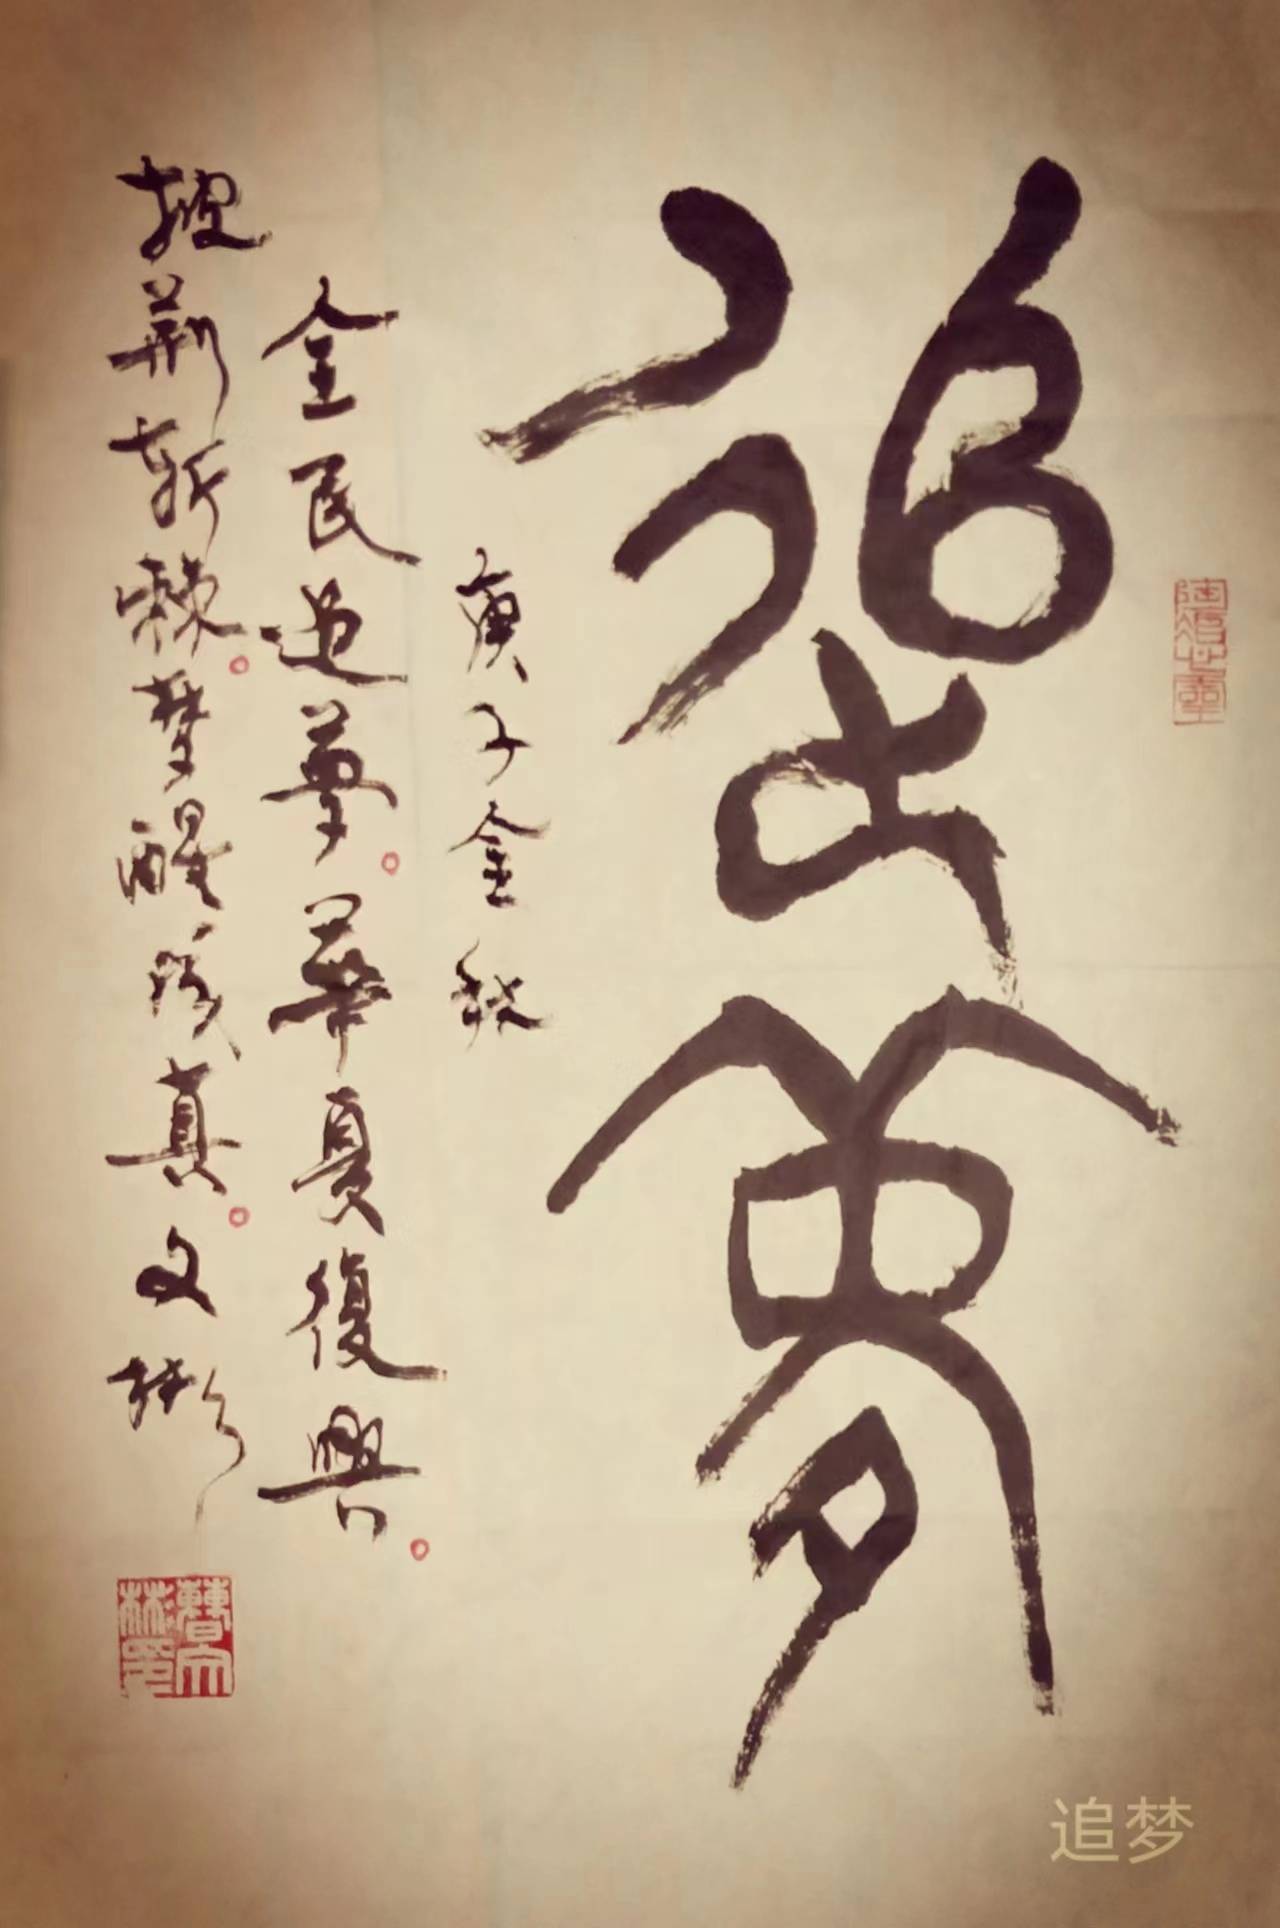 追夢
庚子金秋
全民追夢。華夏復興。
披荊斬棘。梦醒成真。文彬
曹文彬印
追梦